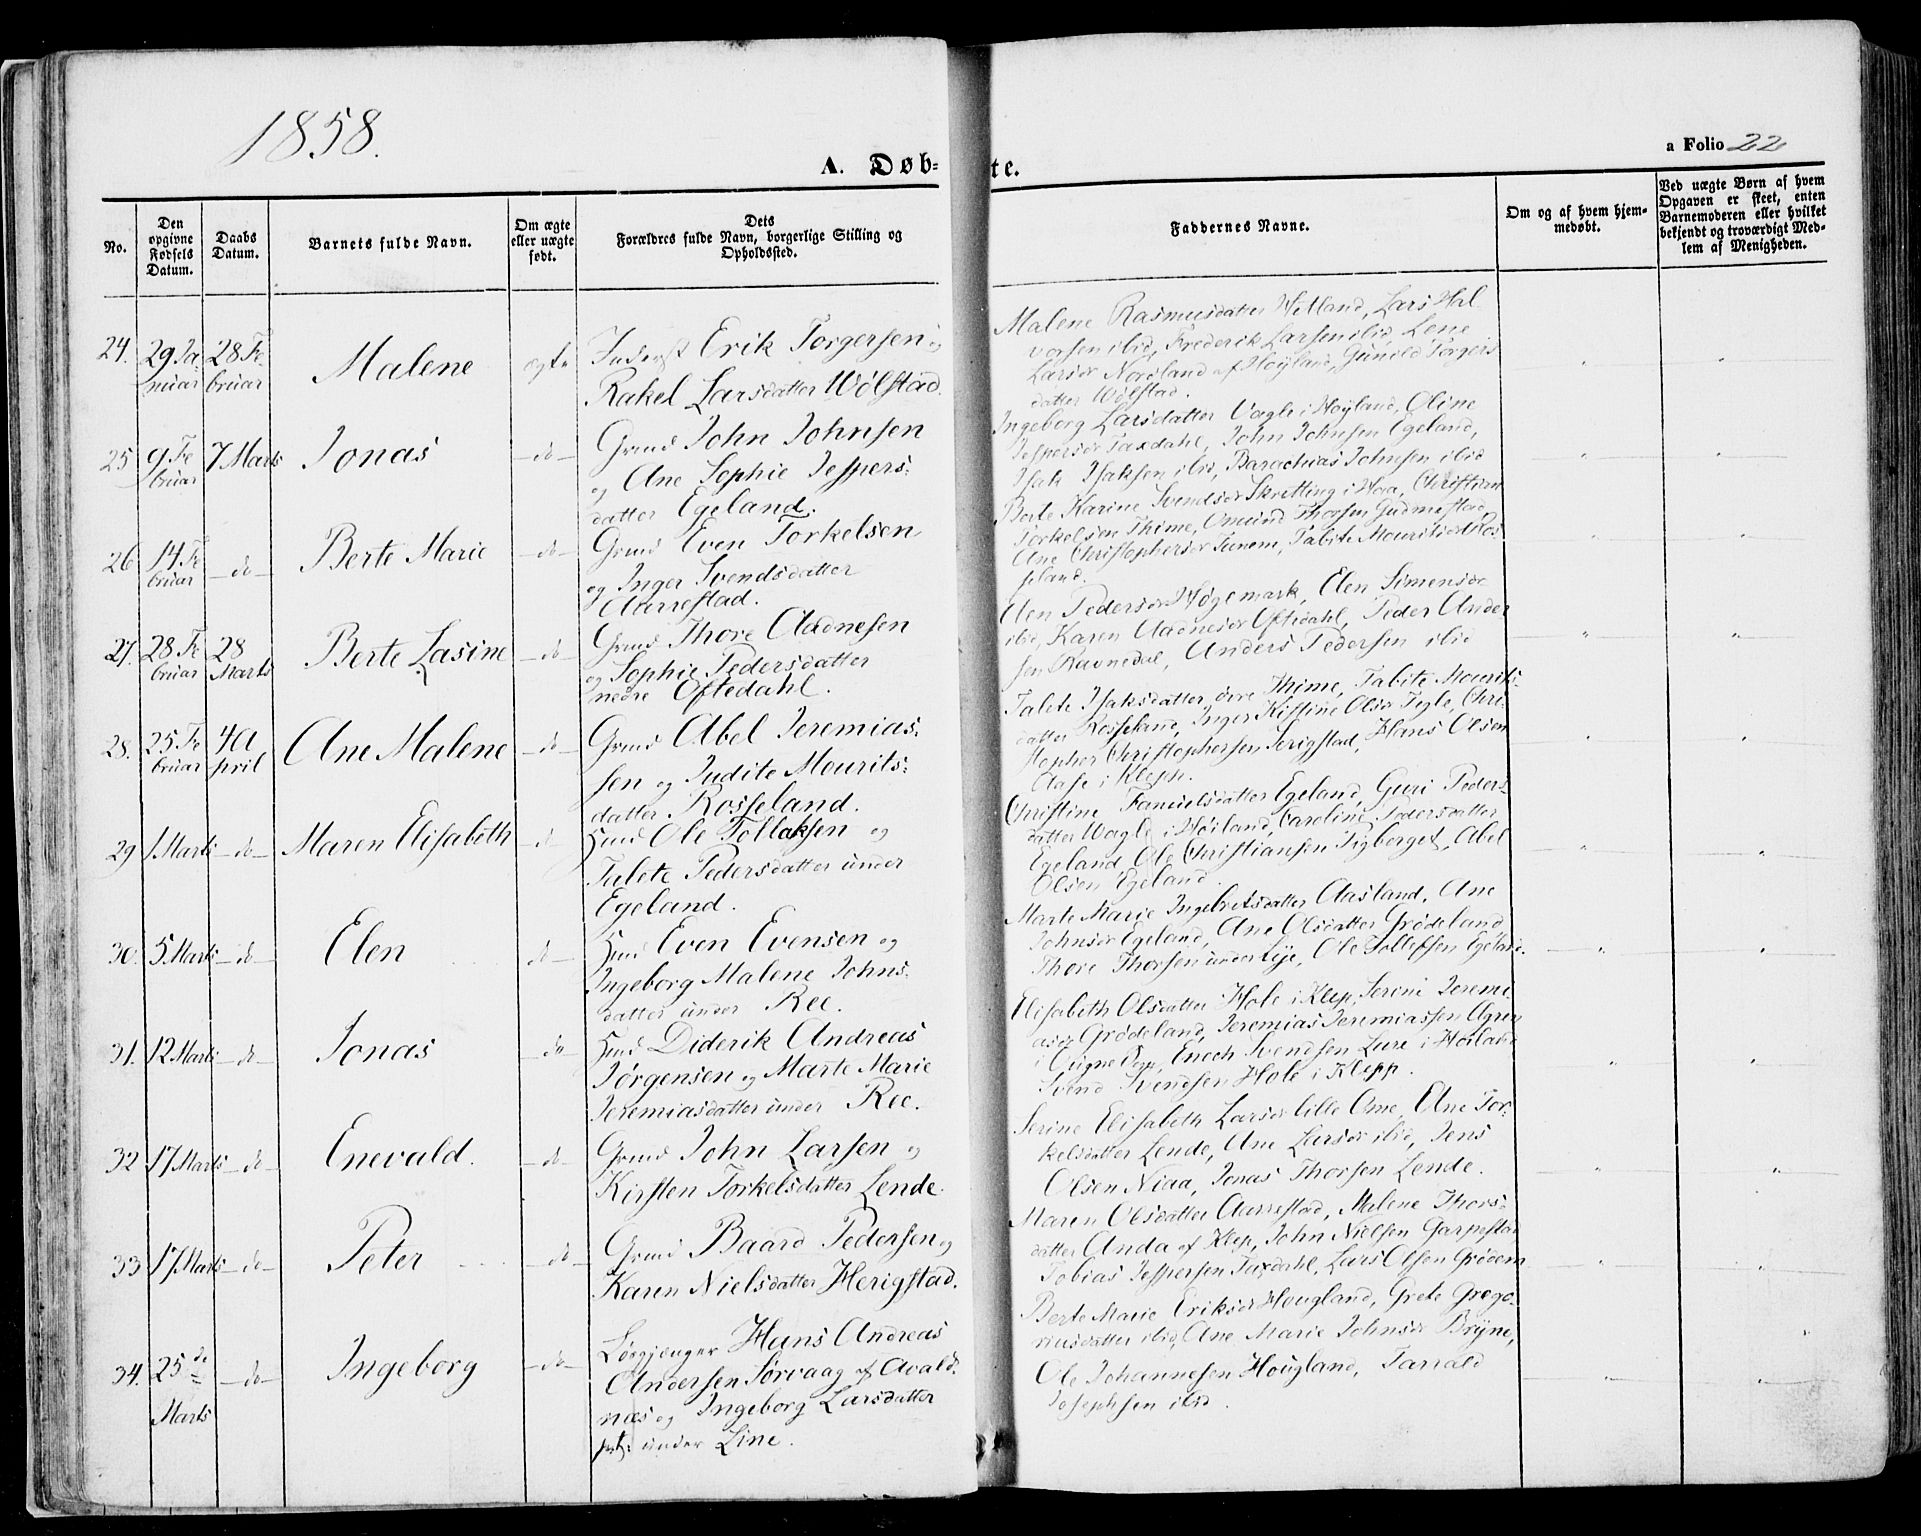 1858.
A. Døb-
te.
a Folio 22
No.
Den opgivne Fødsels Datum.
Daabs Datum.
Barnets fulde Navn.
Om ægte eller uægte født.
Dets Forældres fulde Navn, borgerlige Stilling og Opholdssted.
Faddernes Navne.
Om og af hvem hjem-
medøbt.
Ved uægte Børn af hvem
Opgaven er skeet, enten
Barnemoderen eller hvilket
bekjendt og troværdigt Med-
lem af Menigheden.
24. 29 Ja
nuar
28 Fe
bruar
Malene
ægte
Inderst Erik Torgersen og
Rakel Larsdatter Wølstad.
Malene Rasmusdatter Wetland, Lars Hal
vorsen ibid, Frederik Larsen ibid, Lene
Larsdr Nordland af Høyland, Gunild Torgers
datter Wølstad.
25 9 Fe
bruar
7 Marts
Jonas
do
Grmd John Johnsen
og Ane Sophie Jespers:
datter Egeland.
Ingeborg Larsdatter Vagle i Høyland, Oline
Jespersdr Taxdahl, John Johnsen Egeland,
Isak Isaksen ibid, Barachias Johnsen ibid
26 14 Fe
bruar
do
Berte Marie
do
Grmd Even Torkelsen
og Inger Svendsdatter
Aarrestad.
Berte Karine Svendsdr Skretting i Haa, Christian
Torkelsen Thime, Omund Thorsen Gudmestad,
Ane Christophersdr Tunem, Tabite Mouritsdr Ros
seland.
27. 28 Fe
bruar
28
Marts
Berte Lasine
do
Grmd Thore Aadnesen
og Sophie Pedersdatter
nedre Oftedahl.
Elen Pedersdr Høgemark, Elen Simensdr
ibid, Karen Aadnesdr Oftedahl, Peder Ander
sen Ravnedal, Anders Pedersen ibid
28. 25 Fe
bruar
4 A
pril
Ane Malene
do
Grmd Abel Jeremias:
sen og Judite Mourits:
datter Rosseland.
Talete Isaksdatter øvre Thime, Tabite Mourits-
datter Rosseland, Inger Kistine Olsdr Tegle, Chri-
stopher Christophersen Serigstad, Hans Olsen
Aase i Klepp.
29 1 Marts
do
Maren Elisabeth
d
Huusmd Ole Tollaksen og
Talete Pedersdatter under
Egeland.
Christine Samuelsdatter Egeland, Guri Peders-
datter Wagle i Høiland, Caroline Pedersdatter
Egeland, Ole Christiansen Tigberget, Abel
Olsen Egeland
30. 5 Marts
do
Elen
do
Huusmd Even Evensen og
Ingeborg Malene Johns:
datter under Ree.
Marte Marie Ingebretsdatter Aasland, Ane
Johnsdr Egeland, Ane Olsdatter Grødeland,
Thore Thorsen under Lye, Ole Tollefsen Egeland.
31. 12 Marts
do
Jonas
do
Huusmd Diderik Andreas
Jørgensen og Marte Marie
Jeremiasdatter under Ree.
Elisabeth Olsdatter Hole i Klep, Serine Jeremi
asdr Grødeland, Jeremias Jeremiassen
Enoch Svendsen Lure i Høiland
Svend Svendsen Hole i Klepp.
32 17 Marts
do
Enevald.
do
Grmd John Larsen og
Kirsten Torkelsdatter Lende
Serine Elisabeth Larsdr lille Ome, Ane Tor-
kelsdatter Lende, Ane Larsdr ibid, Jens
Olsen Niaa, Jonas Thorsen Lende.
33 17 Marts
do
Peter
do
Grmd Baard Pedersen og
Karen Nielsdatter Herigstad.
Maren Olsdatter Aarrestad, Malene Thors-
datter Anda af Klep, John Nielsen Garpestad
Tobias Jespersen Taxdahl, Lars Olsen Grødem
34. 25 de
Marts
do
Ingeborg
do
Løsgjænger Hans Andreas
Andersen Sørvaag af Avalds-
næs og Ingeborg Larsdatter
pt: under Line.
Berte Marie Eriksdr Hougland, Grete Grego-
riusdatter ibid, Ane Marie Johnsdr Bryne,
Ole Johannesen Hougland, Tarrald
Josephsen ibid.